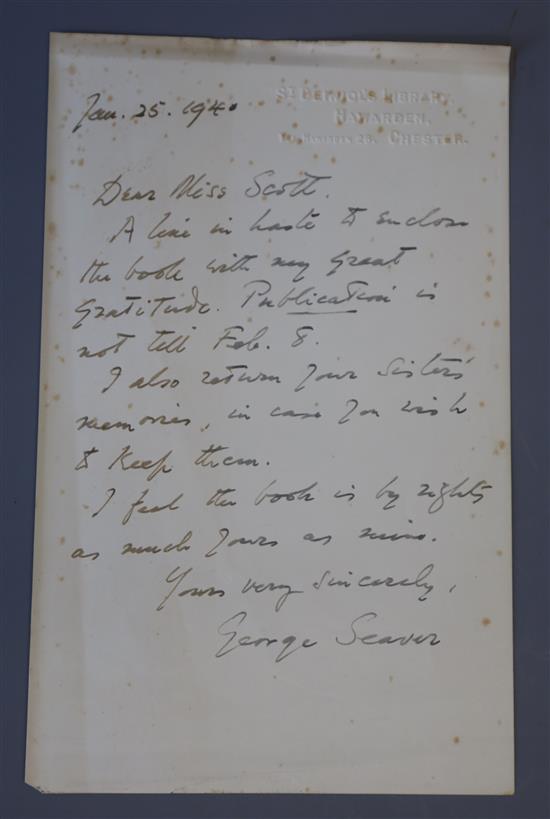 St DEINIOL'S LIBRARY,
HAWARDEN,
TEL HAWARDEN 28. CHESTER.
Jan. 25. 1940
Dear Miss Scott.
A line in haste to enclose
the book with my great
gratitude. Publication is
not till Feb. 8.
I also return your sisters'
memories, in case you wish
to keep them.
I feel the book is by rights
as much yours as mine.
Yours very sincerely,
George Seaver